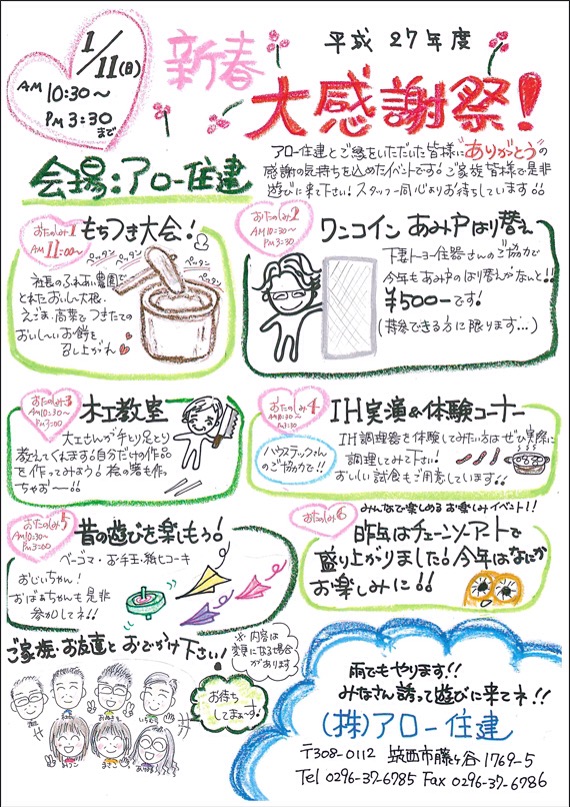 1/11(日)
AM 10:30～
PM 3:30まで
平成 27年度
新春
大感謝祭!
会場:アロー住建
アロー住建とご縁をいただいた皆様に"ありがとう"の
感謝の気持ちを込めたイベントです!ご家族皆様で是非
遊びに来て下さい!スタッフ一同心よりお待ちしています!!
おたのしみ1
AM 11:00～
もちつき大会!
ペッタン ペッタン ペッタン ペッタン
社長のふれあい農園で
とれたおいしい大根、
えごま、高菜とつきたての
おいしいお餅を
召し上がれ
おたのしみ2
AM10:30～
PM3:30
ワンコイン あみ戸はり替え
下妻トーヨー住器さんのご協力で
今年もあみ戸のはり替えがないと!!
¥500-です!
(持参できる方に限ります…)
おたのしみ3
AM10:30～
PM3:00
木工教室
大工さんが手とり足とり
教えてくれます!自分だけの作品
を作ってみよう!桧の箸も作っ
ちゃおー!!
おたのしみ4
AM10:30～
PM3:30
IH実演&体験コーナー
ハウステックさん
のご協力を!!
IH調理器を体験してみたい方はぜひ実際に
調理してみて下さい!
おいしい試食もご用意しています!!
おたのしみ5
AM10:30～
PM3:00
昔の遊びを楽しもう!
ベーゴマ・お手玉・紙ヒコーキ
おじいちゃん!
おばあちゃんも是非
参加してネ!!
おたのしみ6
みんなで楽しめるお楽しみイベント!!
昨年はチェーンソーアートで
盛り上がりました!今年はなにか
お楽しみに!!
ご家族・お友達とおでかけ下さい!
※内容は
変更になる場合
があります
お待ち
してまぁーす!
雨でもやります!!
みなさん誘って遊びに来てネ!!
(株)アロー住建
〒308-0112 筑西市藤ヶ谷1769-5
Tel 0296-37-6785 Fax 0296-37-6786